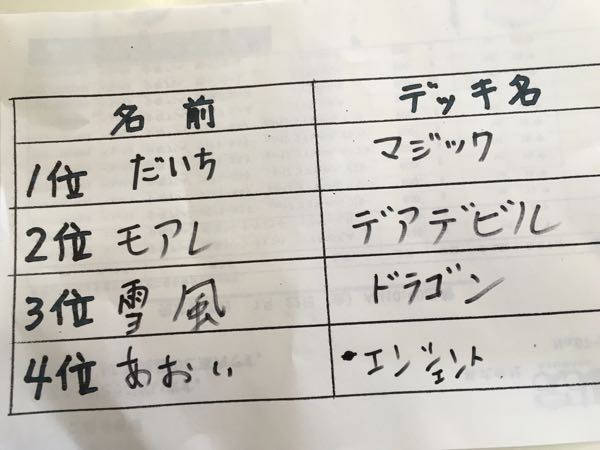 名前 デッキ名
1位 だいち マジック
2位 モアレ デアデビル
3位 雪風 ドラゴン
4位 あおい ・エンジェント